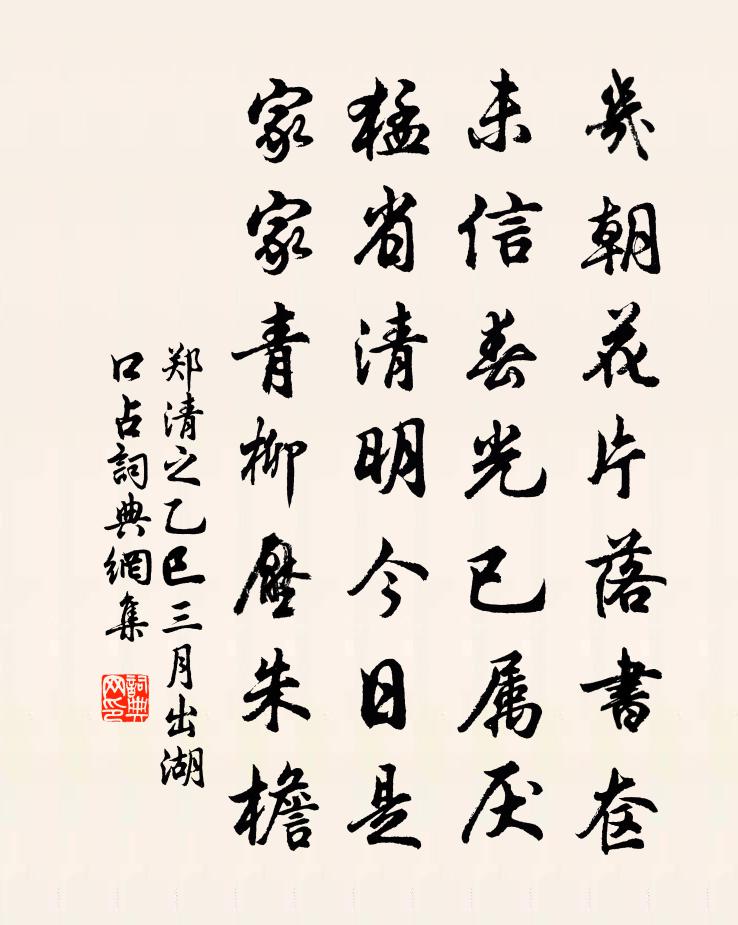 幾朝花片落書奁
未信春光已属厌
猛省清明今日是
家家青柳壓朱檐
郑清之乙巳三月出湖
口占詞典網集
詞典网印